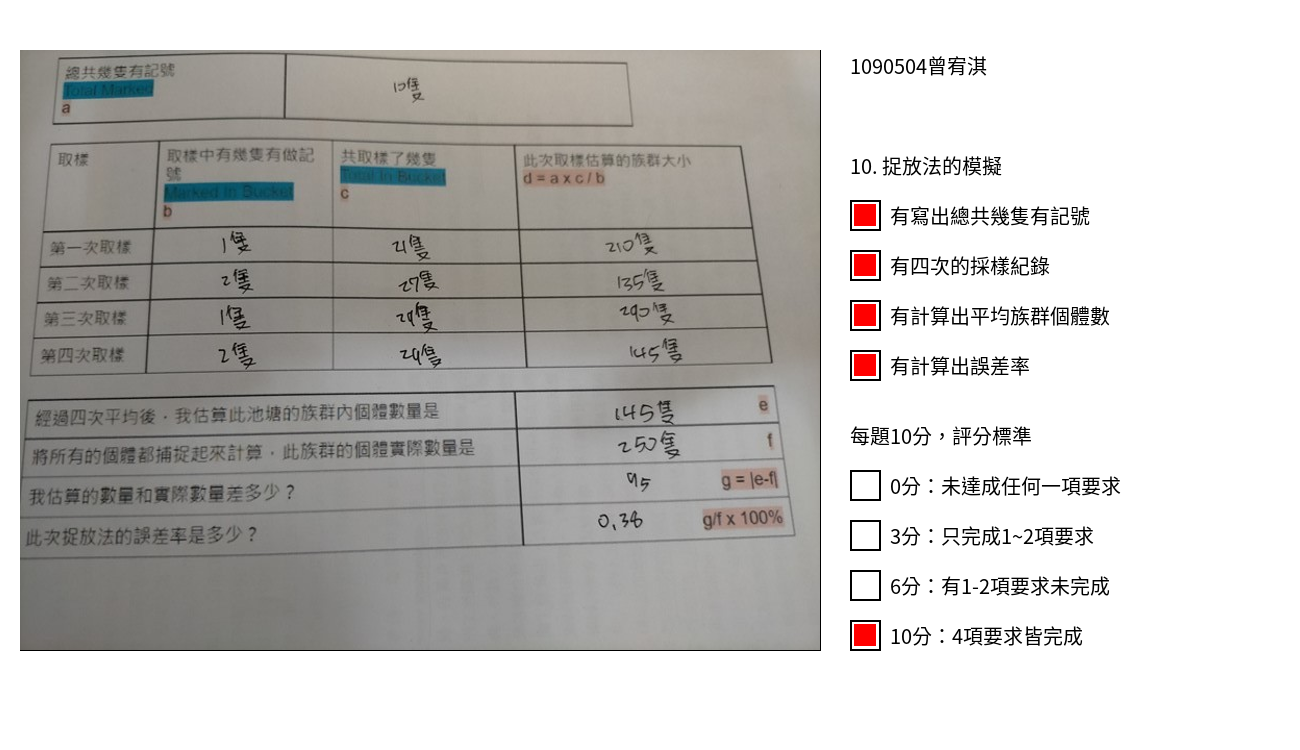 總共幾隻有記號
Total Marked
a
10隻
取樣
取樣中有幾隻有做記號
Marked In Bucket
b
共取樣了幾隻
Total In Bucket
c
此次取樣估算的族群大小
d = a x c / b
第一次取樣 1隻 21隻 210隻
第二次取樣 2隻 27隻 135隻
第三次取樣 1隻 29隻 290隻
第四次取樣 2隻 29隻 145隻
經過四次平均後，我估算此池塘的族群內個體數量是 145隻 e
將所有的個體都捕捉起來計算，此族群的個體實際數量是 250隻 f
我估算的數量和實際數量差多少？ 95 g = |e-f|
此次捉放法的誤差率是多少？ 0,38 g/f x 100%
1090504曾宥淇
10. 捉放法的模擬
有寫出總共幾隻有記號
有四次的採樣紀錄
有計算出平均族群個體數
有計算出誤差率
每題10分，評分標準
0分：未達成任何一項要求
3分：只完成1~2項要求
6分：有1-2項要求未完成
10分：4項要求皆完成